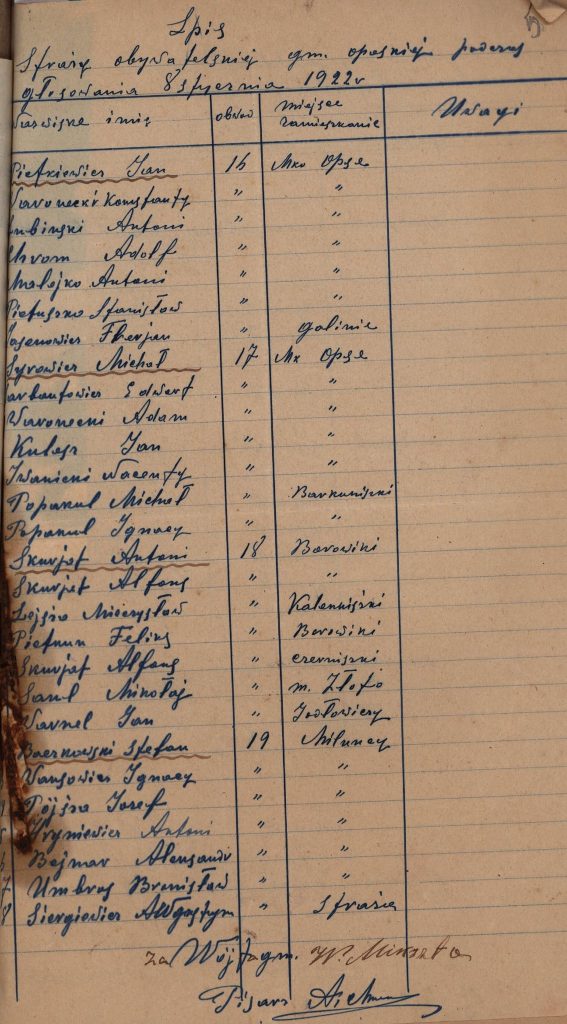 Spis
Straży obywatelskiej gm. opeskiej podczas
głosowania 8 stycznia 1922 r
Nazwisko i imię obwód miejsce zamieszkanie Uwagi
Pietkiewicz Jan 16 Mko Opse
Waroneckr Konstanty " "
Lubinski Antoni " "
Chrom Adolf " "
Malejko Antoni " "
Pietuszko Stanisław " "
Florjan " galinie
Syrowicz Michał 17 Mk Opse
Edwart " "
Waronecki Adam " "
Kulesz Jan " "
Iwanicki Wacenty " "
Popanul Michał " Barkuniszki
Popanul Ignacy " "
Skurjat Antoni 18 Borowini
Skurjat Alfons " "
Łojsza Mieczysław " Kalenniszki
Pietnun Feliks " Borowini
Skurjat Alfons " czerniszki
Saul Mikołaj " m. Złoto
Warnel Jan " Jodłowicy
Baczkowski Stefan 19 Miluncy
Wansowicz Ignacy " "
Pójsza Jozef " "
Hryniewicz Antoni " "
6 Bejnar Aleksandr " "
7 Umbras Bronisław " "
8 Siergiewicz AWgostym " Straża
za Wójta gm.
Pisarz